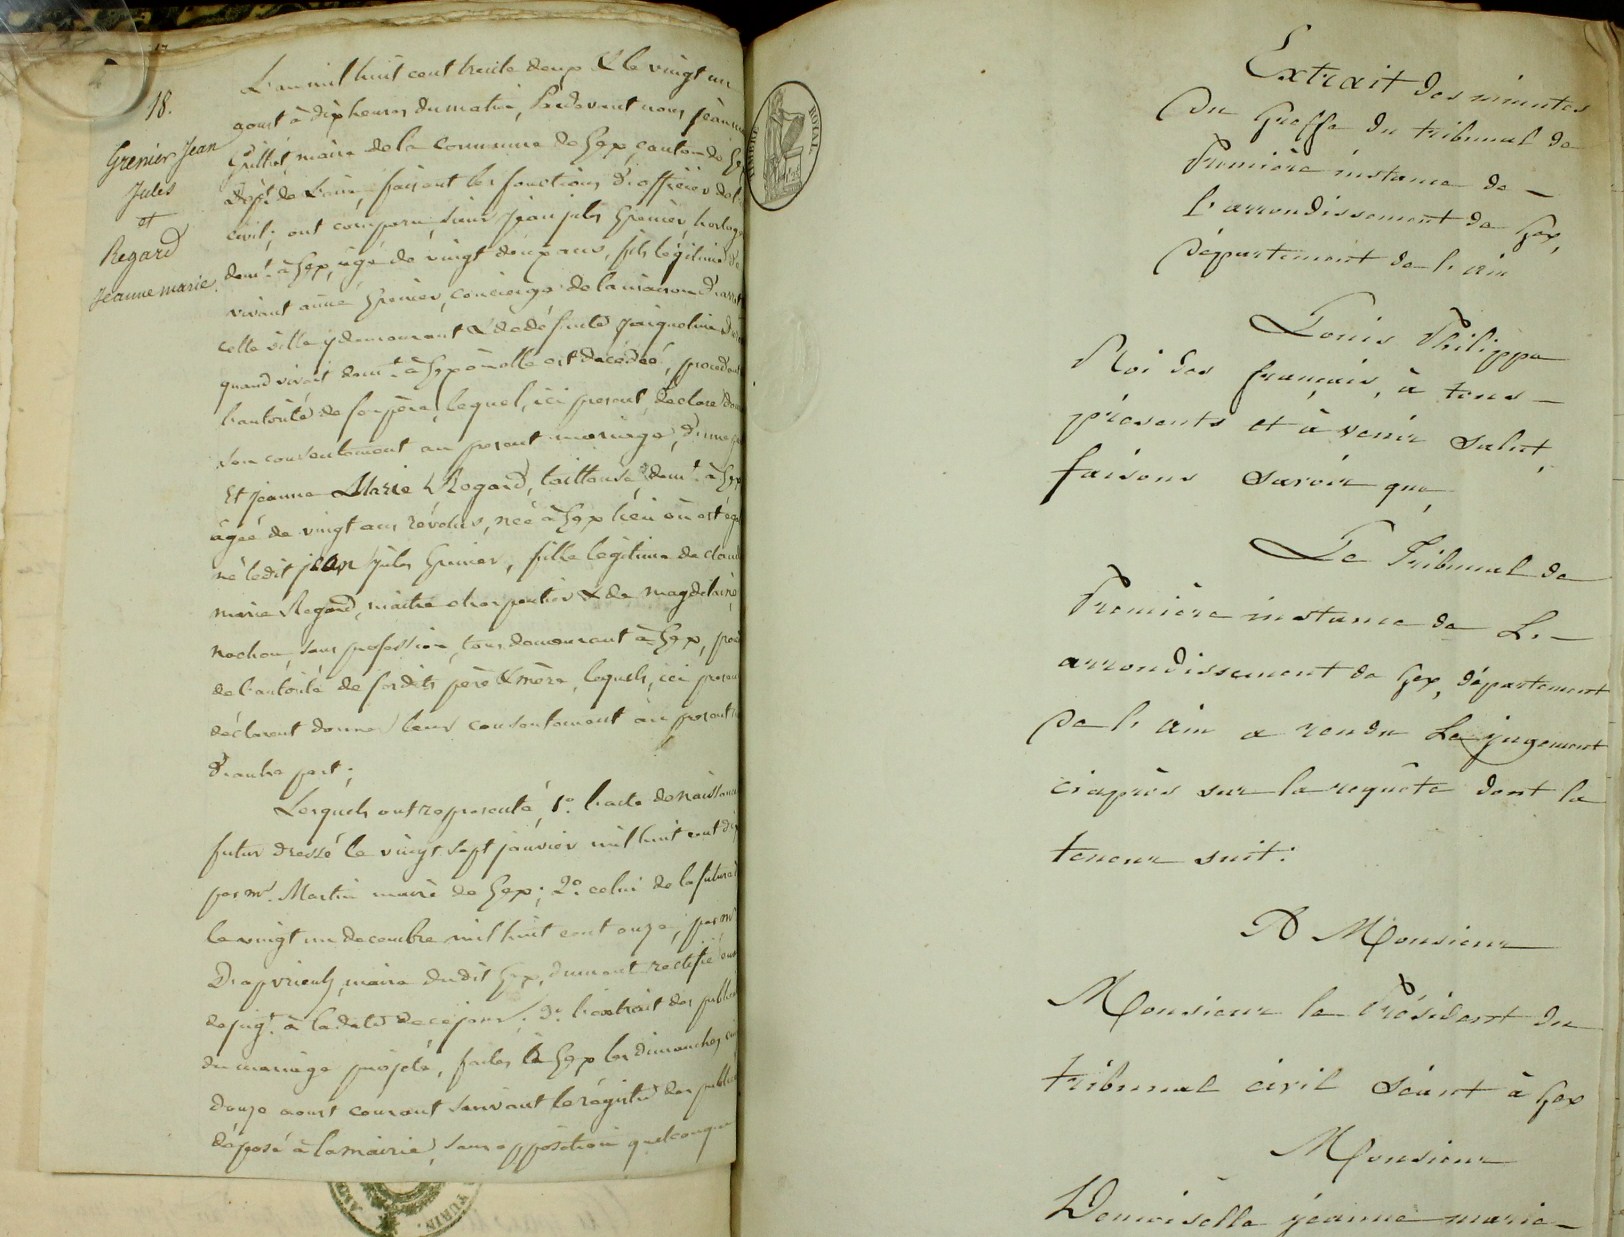 18.
Grenier Jean
Jules
et
Regard
Jeanne marie.
L'an mil huit cent trente deux & le vingt un
aout à dix heures du matin, Pardevant nous jean
maire de la Commune de Gex, canton de Gex
Dépt. de L'ain, faisant les fonctions d'officier de l'
civil; ont comparu, Sieur jean jules Grenier, horloger
domt. à Gex, âgé de vingt deux ans, fils légitime de
vivant aimé Grenier, concierge de la maison d'arrêt
cette ville y demeurant & de défunte jacqueline
quand vivait domt. à Gex où elle est décédée, procédant
l'autorité de son père, lequel, ici présent, déclare donner
son consentement au présent mariage, d'une part
Et jeanne Marie Regard, tailleuse, domt. à Gex
âgée de vingt ans révolus, née à Gex lieu où est
né ledit jean jules Grenier, fille légitime de claude
marie Regard, maitre charpentier & de magdelaine
nachon, sans profession, tous demeurant à Gex, procédant
de l'autorité de sesdits père & mère, lesquels, ici présents
déclarent donner leur consentement au présent
D'autre part;
Lesquels ont représenté, 1º. l'acte de naissance
futur dressé le vingt sept janvier mil huit cent dix
par mr. Martin maire de Gex; 2º. celui de la future
le vingt un decembre mil huit cent onze, par mr
maire dudit Gex, dument rectifié
de jugt. à la date de ce jour; 3º. l'extrait des publications
du mariage projeté, faites à Gex les dimanches
douze aout courant suivant le régistre des publications
déposé à la mairie, sans opposition quelconque
TIMBRE ROYAL
Extrait des minutes
Du Greffe du tribunal de
Première instance de
l'arrondissement de Gex,
Département de l'ain
Louis Philippe
Roi des français, à tous
présents et à venir salut,
faisons savoir que,
Le Tribunal de
Première instance de L'
arrondissement de Gex, département
De l'ain a rendu Le jugement
ciaprès sur la requête dont la
teneur suit:
A Monsieur
Monsieur le Président du
tribunal civil séant à Gex
Monsieur
Demoiselle jeanne marie
TURIN.